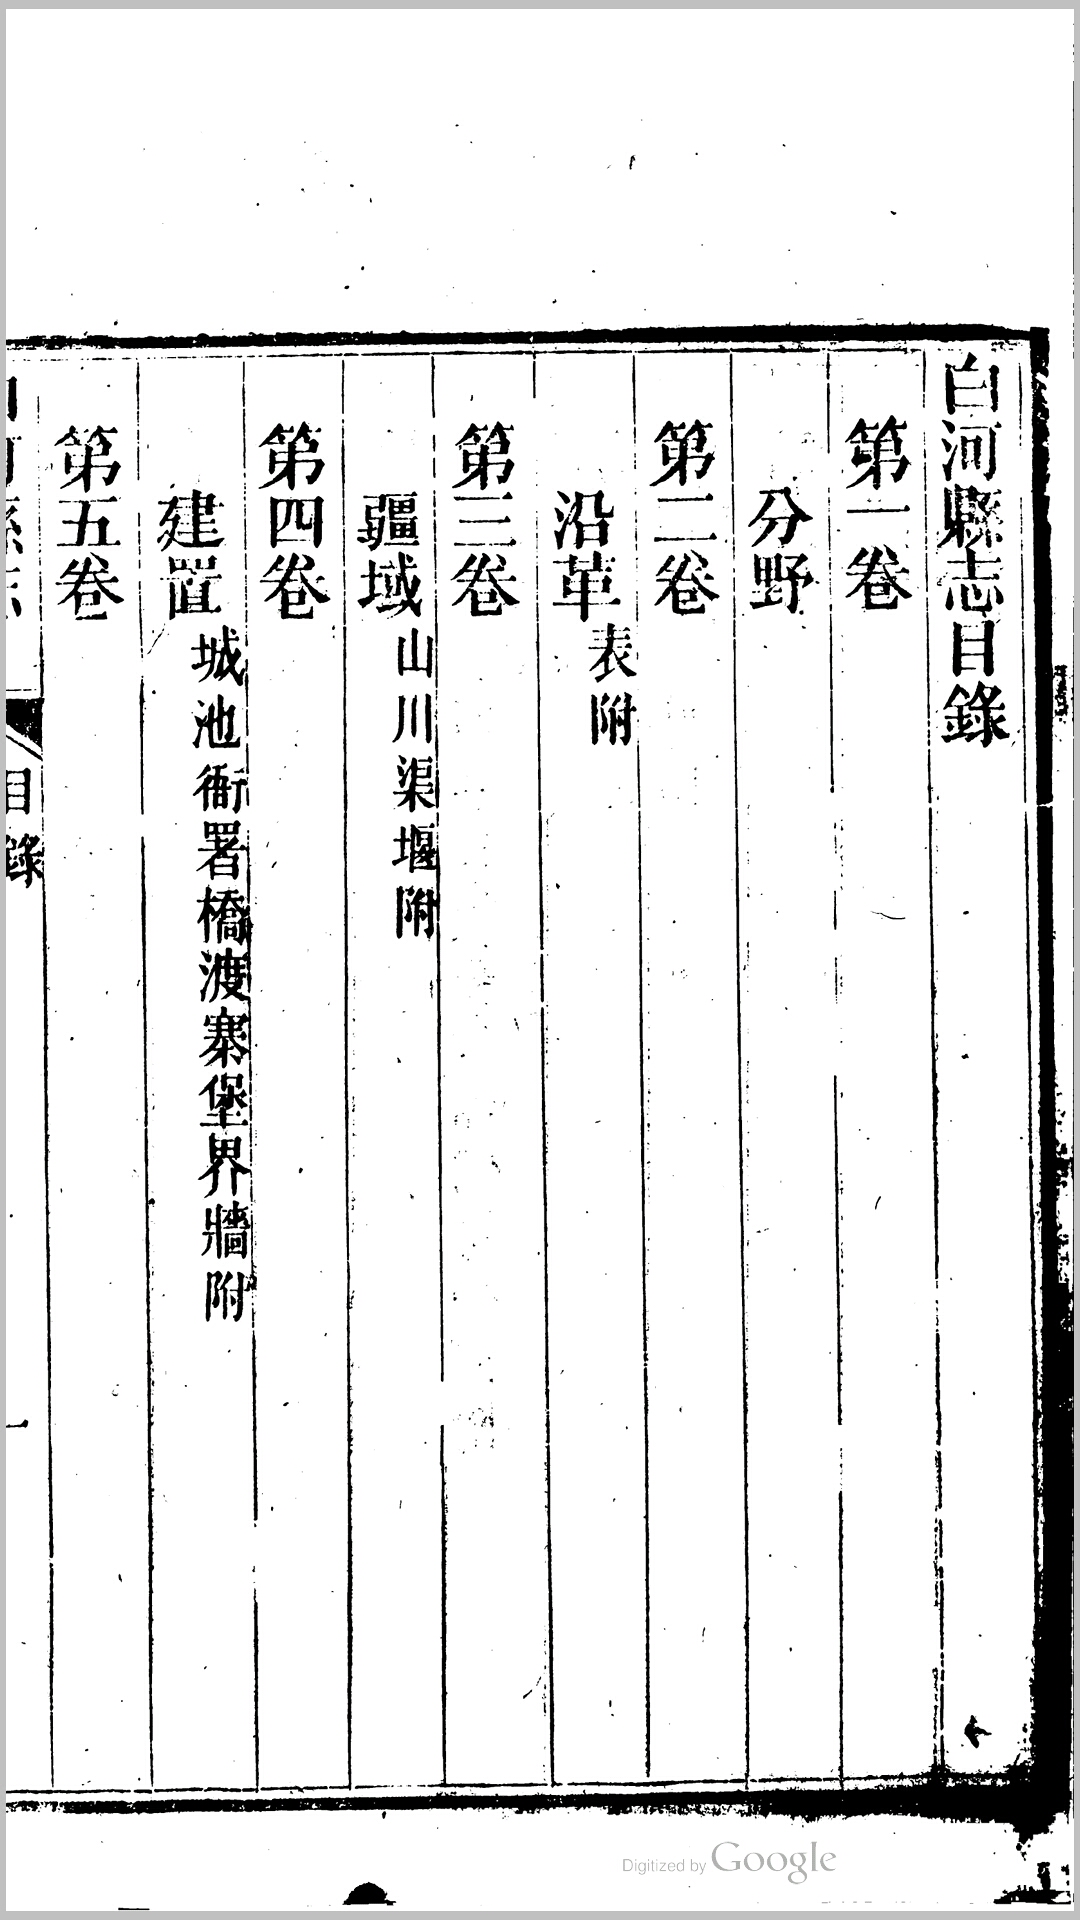 白河縣志目錄
第一卷
分野
第二卷
沿革表附
第三卷
疆域山川渠堰附
第四卷
建置城池衙署橋渡寨堡界牆附
第五卷
目錄
一
Digitized by Google